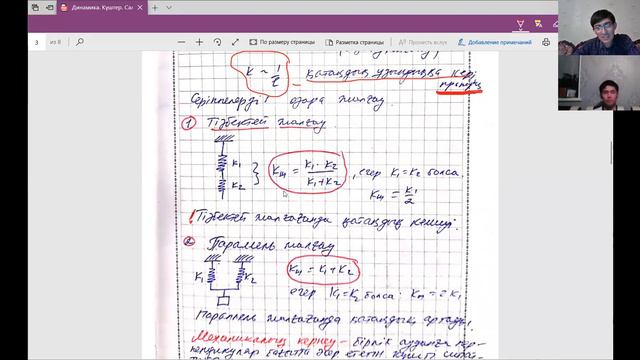 Динамика. Күштер. Сал
3 из 8
По размеру страницы
Разметка страницы
Прочесть вслух
Добавление примечаний
K ~ 1/ℓ – қатаңдық ұзындыққа кері пропорц
Серіппелерді өзара жалғау.
① Тізбектей жалғау
K₁
K₂
Kж = K₁·K₂/K₁+K₂, егер K₁=K₂ болса.
Kж = K₁/2
! Тізбектей жалғағанда қатаңдық кемиді.
② Параллель жалғау
K₁
K₂
Kж = K₁+K₂
егер K₁=K₂ болса: Kж = 2K₁
Параллель жалғағанда қатаңдық артады.
Механикалық кернеу – бірлік ауданға пер-
пендикуляр бағытта әсер ететін күшті сипат-